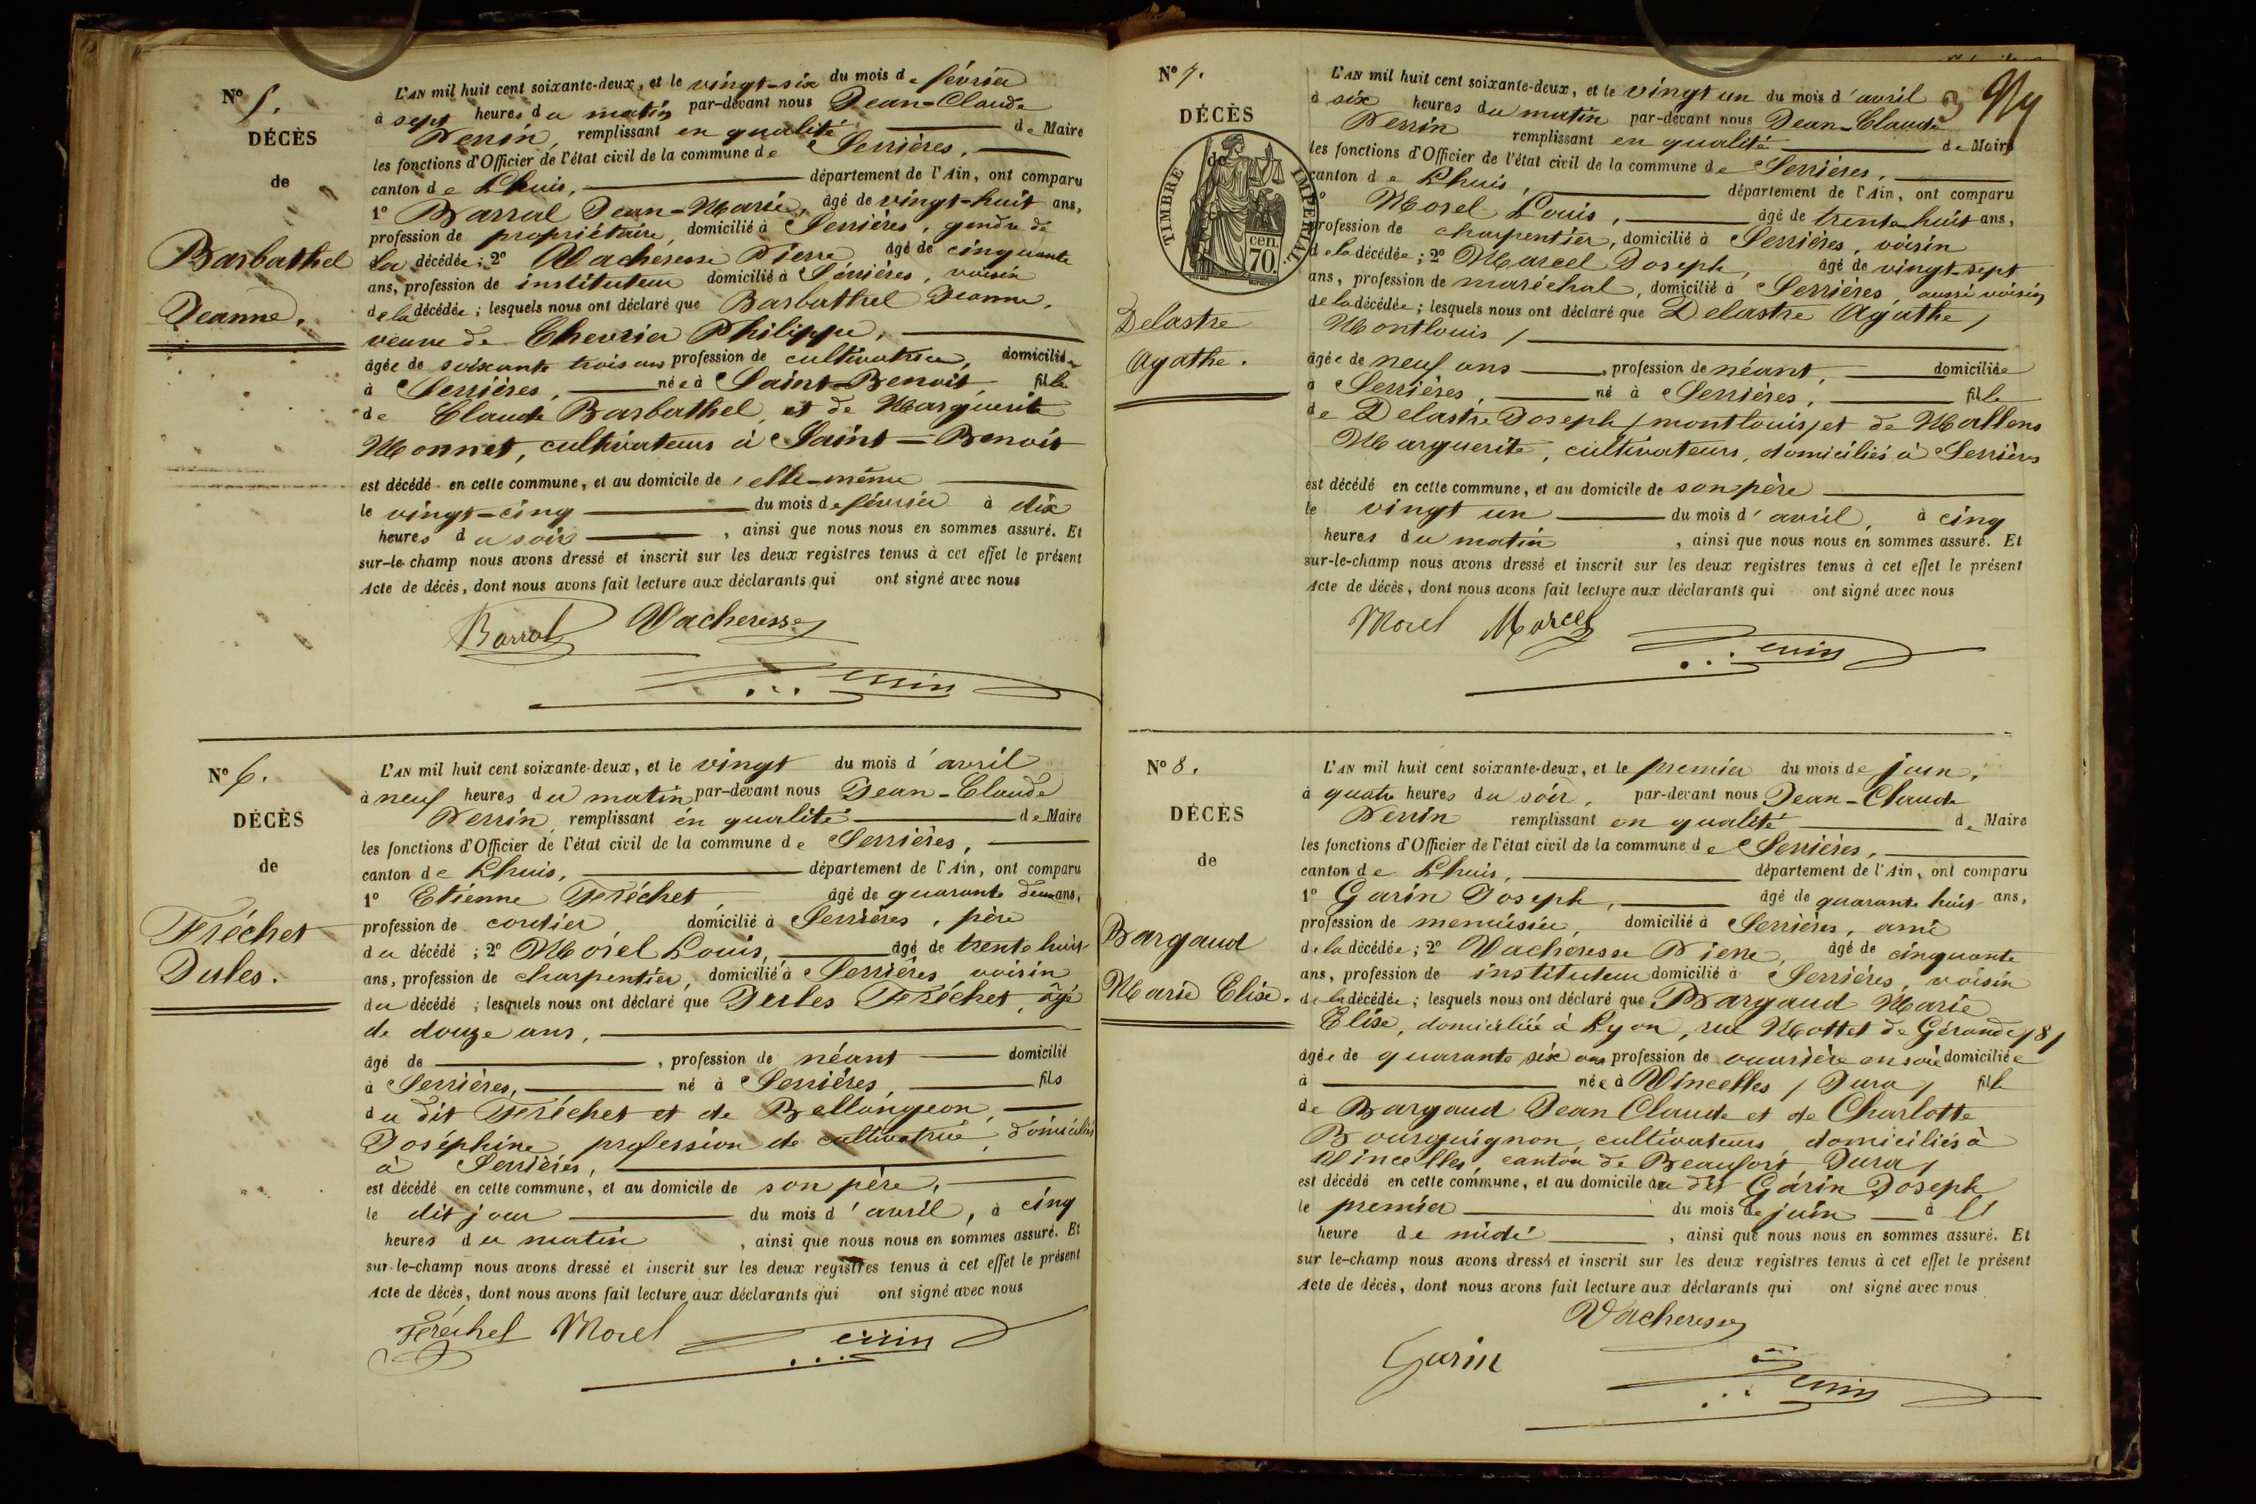 N° 5.
DÉCÈS
de
Barbathel
Jeanne.
L'AN mil huit cent soixante-deux, et le vingt-six du mois de février
à sept heures du matin par-devant nous Jean-Claude
Perrin, remplissant en qualité de Maire
les fonctions d'Officier de l'état civil de la commune de Serrières,
canton de Lhuis, département de l'Ain, ont comparu
1° Barral Jean-Marie, âgé de vingt-huit ans,
profession de propriétaire, domicilié à Serrières, gendre de
la décédée; 2° Vacheresse Pierre âgé de cinquante
ans, profession de instituteur domicilié à Serrières, voisin
de la décédée; lesquels nous ont déclaré que Barbathel Jeanne,
veuve de Chevrier Philippe,
âgée de soixante trois ans profession de cultivatrice, domiciliée
à Serrières, née à Saint-Benoit, fille
de Claude Barbathel, et de Marguerite
Monnet, cultivateurs à Saint-Benoit
est décédé en cette commune, et au domicile de elle-même
le vingt-cinq du mois de février à dix
heures du soir, ainsi que nous nous en sommes assuré. Et
sur-le-champ nous avons dressé et inscrit sur les deux registres tenus à cet effet le présent
Acte de décès, dont nous avons fait lecture aux déclarants qui ont signé avec nous
Barral Vacheresse
Perrin
N° 6.
DÉCÈS
de
Fréchet
Jules.
L'AN mil huit cent soixante-deux, et le vingt du mois d'avril
à neuf heures du matin par-devant nous Jean-Claude
Perrin, remplissant en qualité de Maire
les fonctions d'Officier de l'état civil de la commune de Serrières,
canton de Lhuis, département de l'Ain, ont comparu
1° Etienne Fréchet, âgé de quarante deux ans,
profession de cordier domicilié à Serrières, père
du décédé; 2° Morel Louis, âgé de trente huit
ans, profession de charpentier, domicilié à Serrières voisin
du décédé; lesquels nous ont déclaré que Jules Fréchet, âgé
de douze ans,
âgé de , profession de néant domicilié
à Serrières, né à Serrières, fils
du dit Fréchet et de Bellongeon,
Joséphine, profession de cultivatrice, domiciliés
à Serrières,
est décédé en cette commune, et au domicile de son père,
le dit jour du mois d'avril, à cinq
heures du matin, ainsi que nous nous en sommes assuré. Et
sur-le-champ nous avons dressé et inscrit sur les deux registres tenus à cet effet le présent
Acte de décès, dont nous avons fait lecture aux déclarants qui ont signé avec nous
Fréchet Morel Perrin
N° 7.
DÉCÈS
de
TIMBRE IMPÉRIAL
70 cen.
Delastre
Agathe.
L'AN mil huit cent soixante-deux, et le vingt un du mois d'avril
à six heures du matin par-devant nous Jean-Claude
Perrin remplissant en qualité de Maire
les fonctions d'Officier de l'état civil de la commune de Serrières,
canton de Lhuis, département de l'Ain, ont comparu
1° Morel Louis, âgé de trente huit ans,
profession de charpentier, domicilié à Serrières, voisin
de la décédée; 2° Marcel Joseph, âgé de vingt-sept
ans, profession de maréchal, domicilié à Serrières, aussi voisin
de la décédée; lesquels nous ont déclaré que Delastre Agathe /
Montlouis /
âgée de neuf ans, profession de néant, domiciliée
à Serrières, né à Serrières, fille
de Delastre Joseph / montlouis / et de Mallens
Marguerite, cultivateurs, domiciliés à Serrières
est décédé en cette commune, et au domicile de son père
le vingt un du mois d'avril, à cinq
heures du matin, ainsi que nous nous en sommes assuré. Et
sur-le-champ nous avons dressé et inscrit sur les deux registres tenus à cet effet le présent
Acte de décès, dont nous avons fait lecture aux déclarants qui ont signé avec nous
Morel Marcel Perrin
N° 8.
DÉCÈS
de
Bargaud
Marie Elise.
L'AN mil huit cent soixante-deux, et le premier du mois de juin,
à quatre heures du soir, par-devant nous Jean-Claude
Perrin remplissant en qualité de Maire
les fonctions d'Officier de l'état civil de la commune de Serrières,
canton de Lhuis, département de l'Ain, ont comparu
1° Garin Joseph, âgé de quarante huit ans,
profession de menuisier, domicilié à Serrières, ami
de la décédée; 2° Vacheresse Pierre, âgé de cinquante
ans, profession de instituteur domicilié à Serrières, voisin
de la décédée; lesquels nous ont déclaré que Bargaud Marie
Elise, domiciliée à Lyon, rue Mottet de Gérando / 8 /
âgée de quarante six ans profession de ouvrière en soie domiciliée
à née à Vincelles / Jura / fille
de Bargaud Jean Claude et de Charlotte
Bourguignon, cultivateurs domiciliés à
Vincelles, canton de Beaufort Jura /
est décédé en cette commune, et au domicile du dit Garin Joseph
le premier du mois de juin à l'
heure de midi, ainsi que nous nous en sommes assuré. Et
sur le-champ nous avons dressé et inscrit sur les deux registres tenus à cet effet le présent
Acte de décès, dont nous avons fait lecture aux déclarants qui ont signé avec nous
Vacheresse
Garin
Perrin